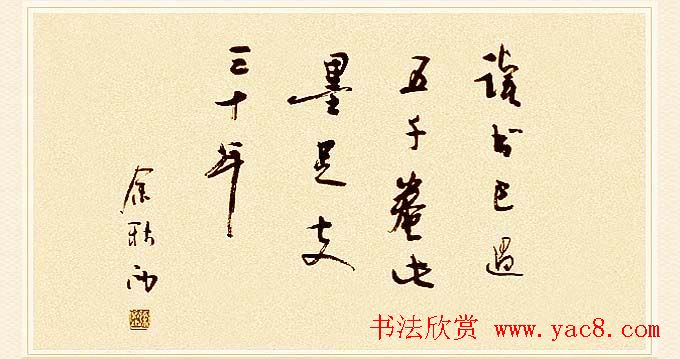 讀书已過
五千卷此
墨足支
三十年
余秋雨
书法欣赏 www.yac8.com